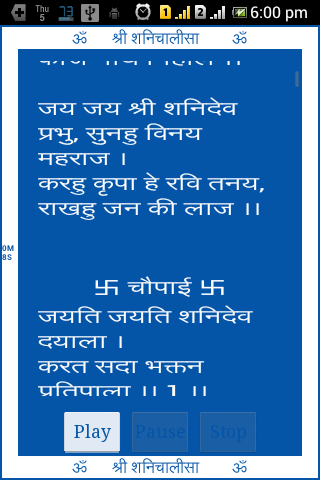 Thu
5
23
1
2
6:00 pm
ॐ श्री शनिचालीसा ॐ
जय जय श्री शनिदेव
प्रभु, सुनहु विनय
महराज ।
करहु कृपा हे रवि तनय,
राखहु जन की लाज ।।
0M
8S
卐 चौपाई 卐
जयति जयति शनिदेव
दयाला ।
करत सदा भक्तन
प्रतिपाला ।। 1 ।।
Play Pause Stop
ॐ श्री शनिचालीसा ॐ